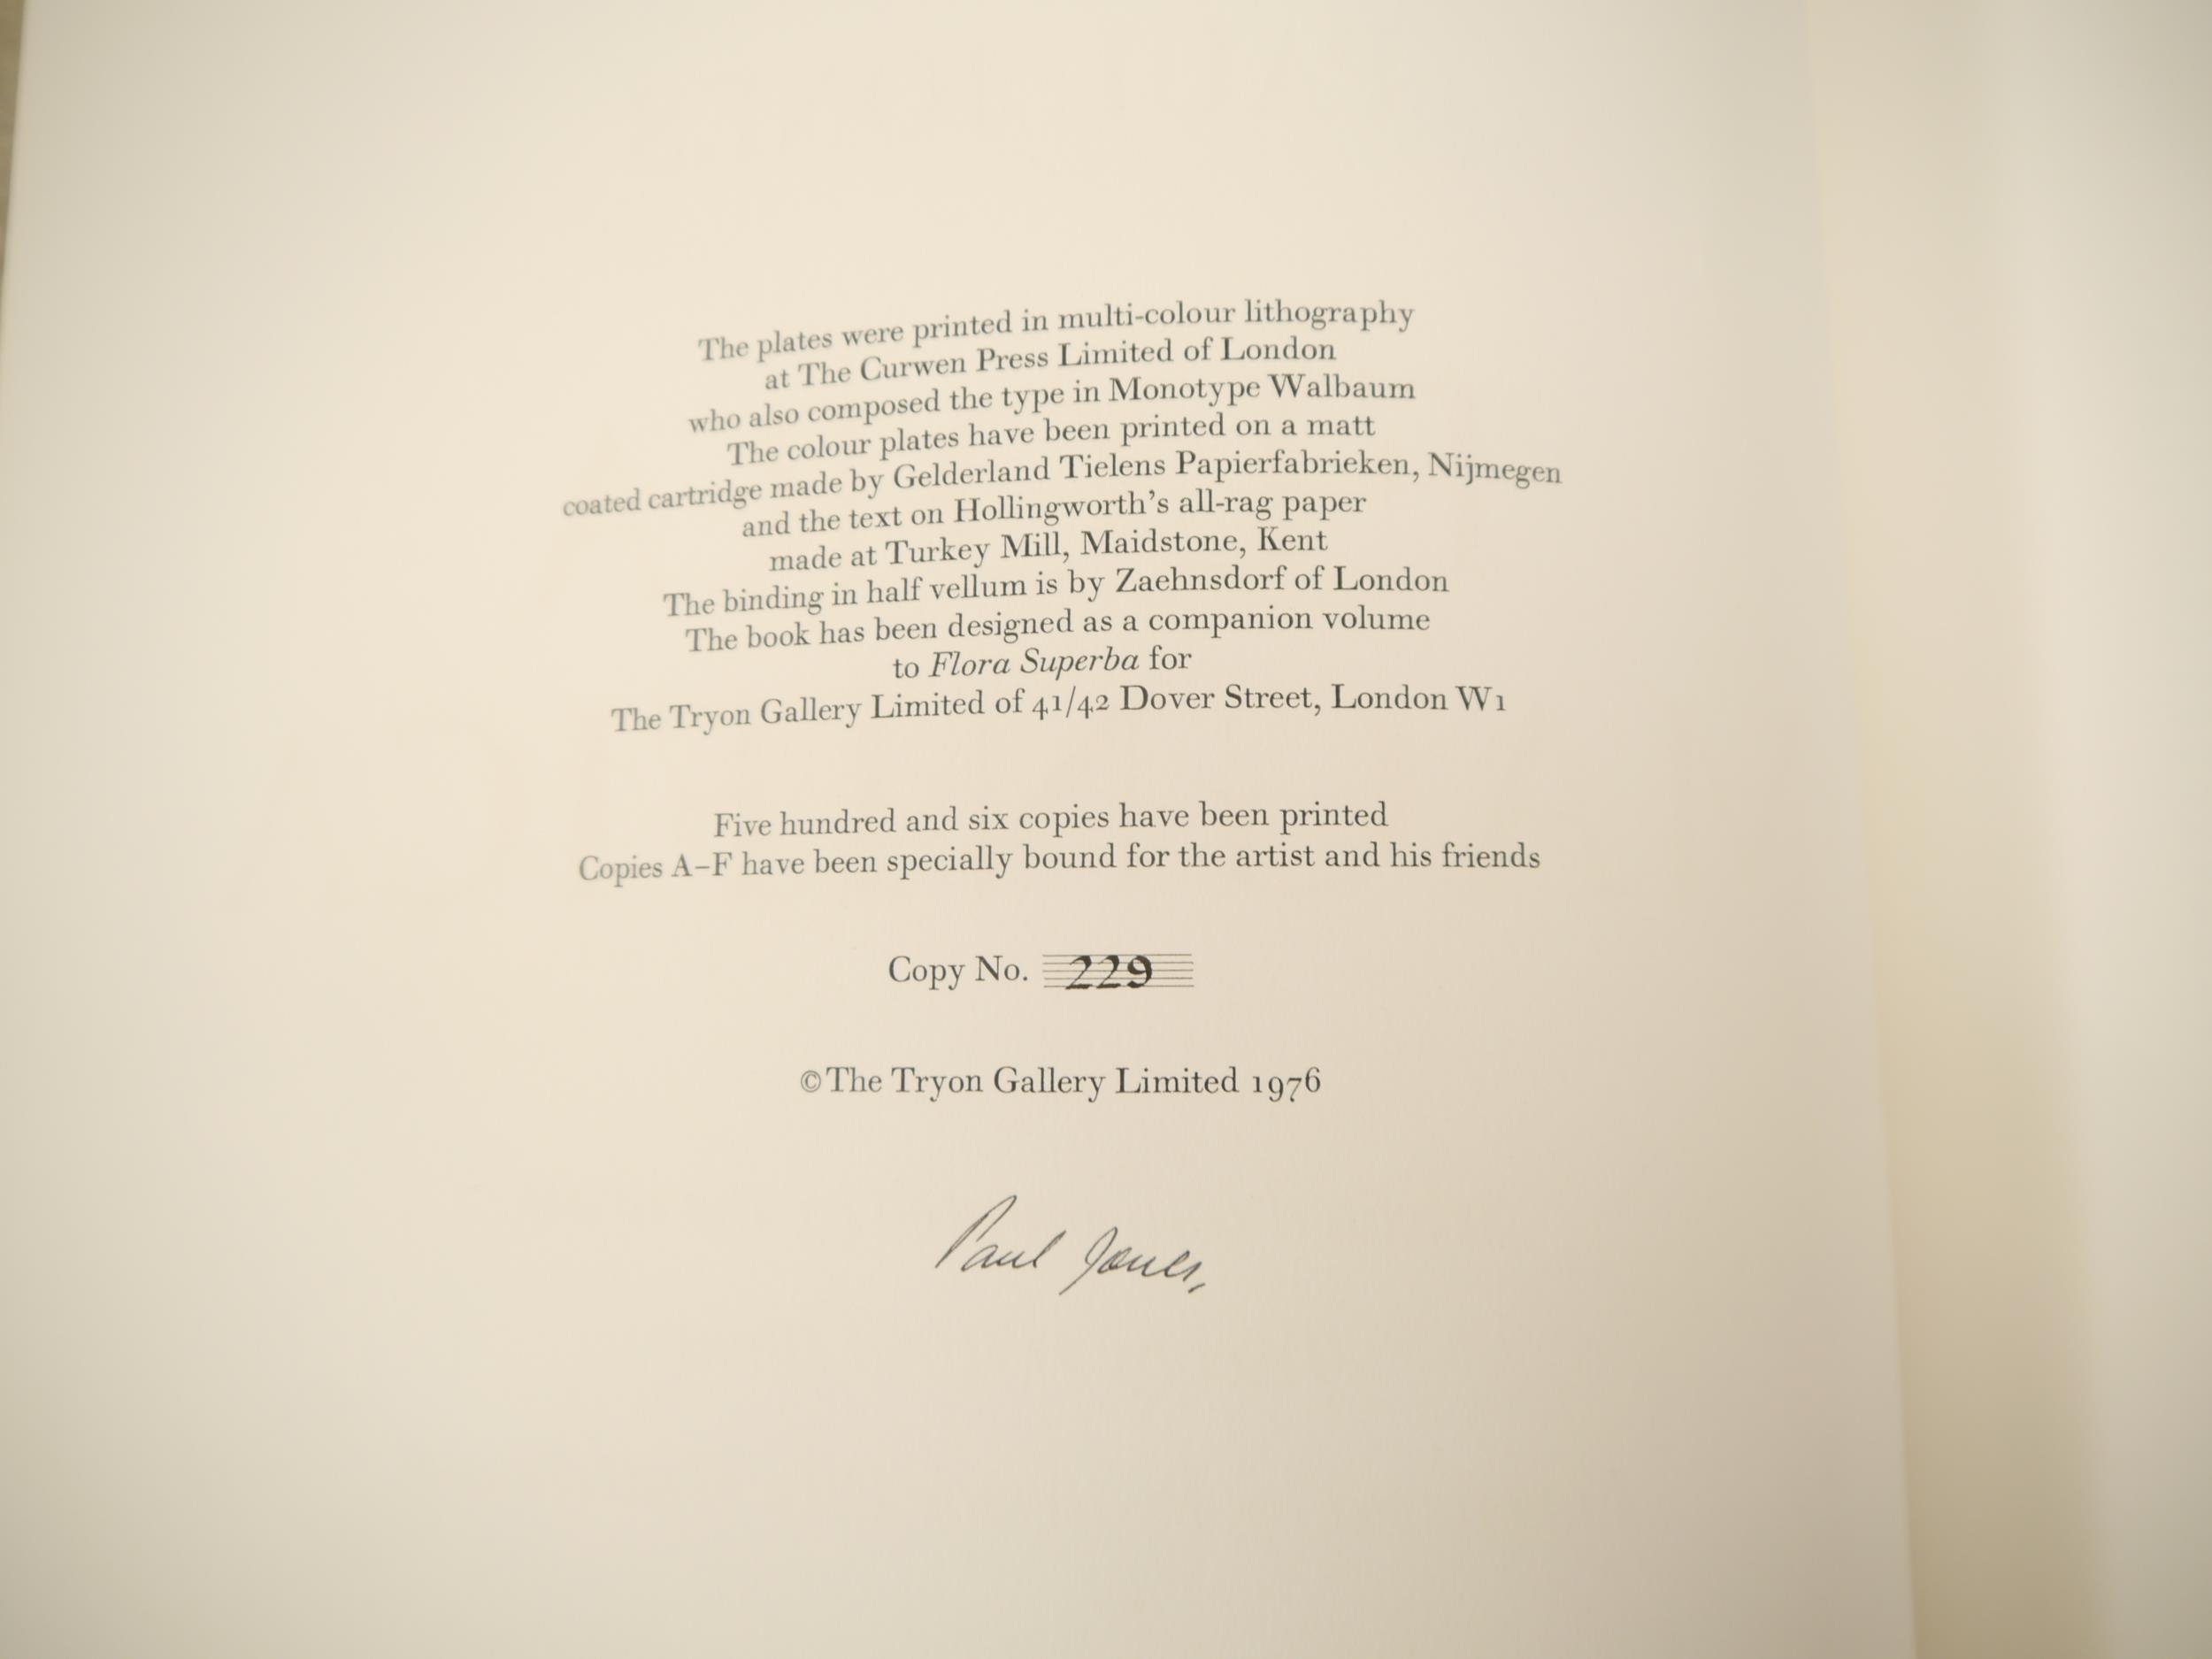 The plates were printed in multi-colour lithography
at The Curwen Press Limited of London
who also composed the type in Monotype Walbaum
The colour plates have been printed on a matt
coated cartridge made by Gelderland Tielens Papierfabrieken, Nijmegen
and the text on Hollingworth's all-rag paper
made at Turkey Mill, Maidstone, Kent
The binding in half vellum is by Zaehnsdorf of London
The book has been designed as a companion volume
to Flora Superba for
The Tryon Gallery Limited of 41/42 Dover Street, London W1
Five hundred and six copies have been printed
Copies A–F have been specially bound for the artist and his friends
Copy No. 229
©The Tryon Gallery Limited 1976
Paul Jones.